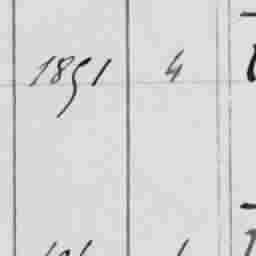 1851 4